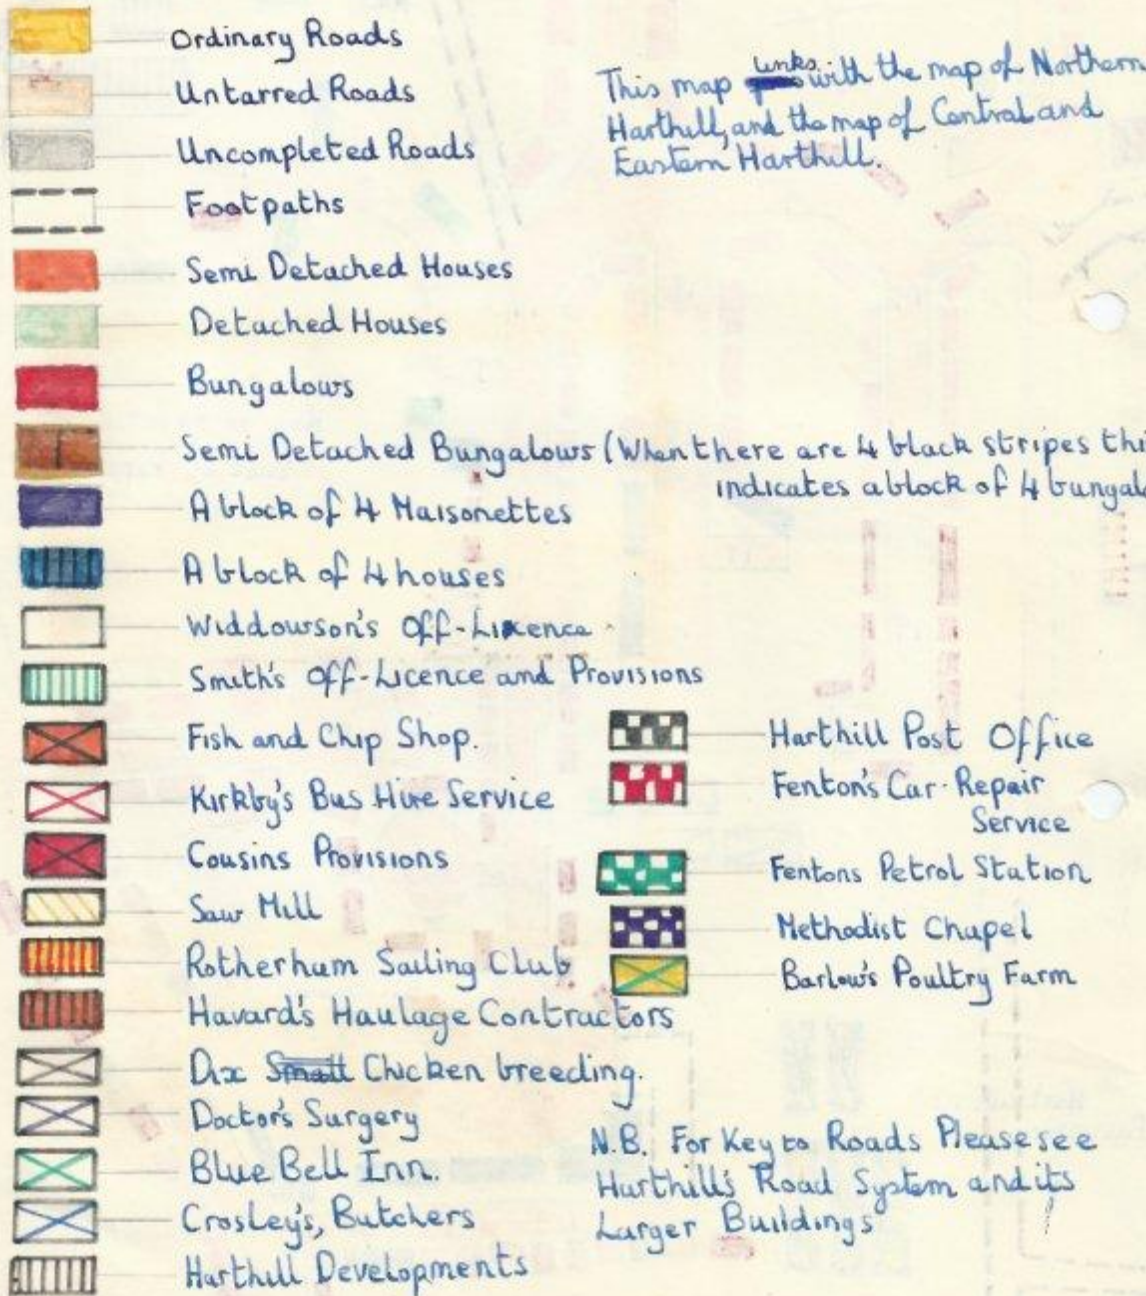 Ordinary Roads
Untarred Roads
Uncompleted Roads
Footpaths
Semi Detached Houses
Detached Houses
Bungalows
Semi Detached Bungalows (When there are 4 black stripes thi
indicates a block of 4 bungal
A block of 4 Maisonettes
A block of 4 houses
Widdowson's Off-Licence
Smith's Off-Licence and Provisions
Fish and Chip Shop.
Kirkby's Bus Hire Service
Cousins Provisions
Saw Mill
Rotherham Sailing Club
Havard's Haulage Contractors
Dix Small Chicken breeding.
Doctor's Surgery
Blue Bell Inn.
Crosley's, Butchers
Harthill Developments
This map links with the map of Northern
Harthill, and the map of Central and
Eastern Harthill.
Harthill Post Office
Fenton's Car Repair
Service
Fentons Petrol Station
Methodist Chapel
Barlow's Poultry Farm
N.B. For Key to Roads Please see
Harthill's Road System and its
Larger Buildings